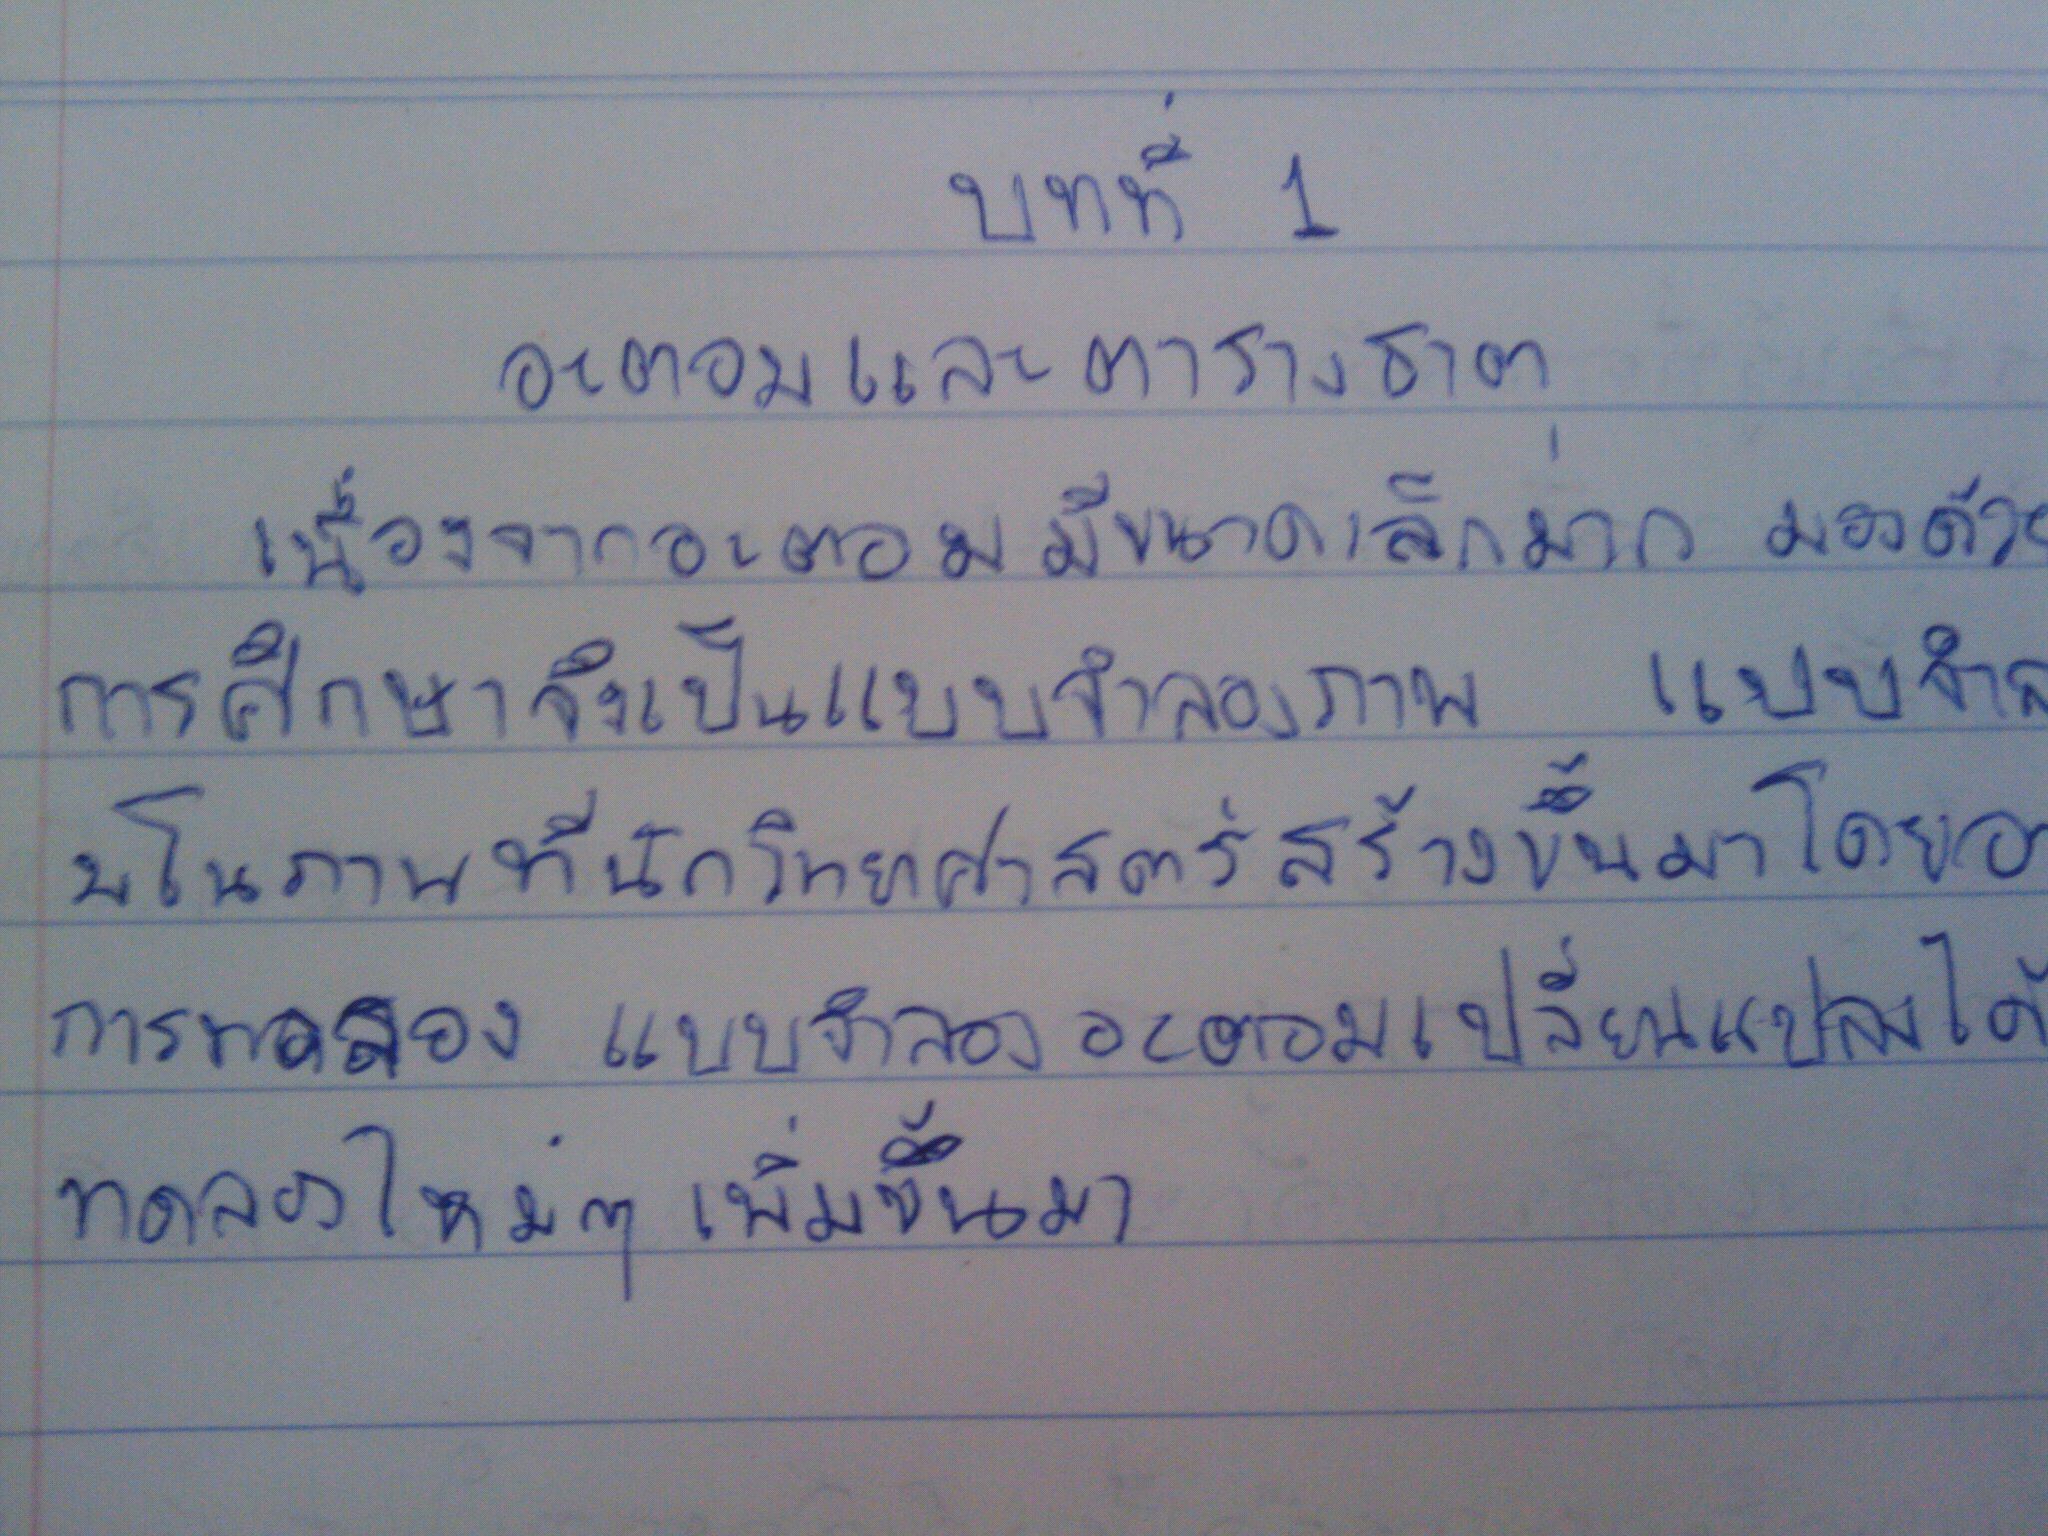 บทที่ 1
อะตอมและตารางธาต
เนื่องจากอะตอมมีขนาดเล็กม่าก มองด้วย
การศึกษาจึงเป็นแบบจำลองภาพ แบบจำล
มโนภาพที่นักวิทยาศาสตร์สร้างขึ้นมาโดยอา
การทดลอง แบบจำลองอะตอมเปลี่ยนแปลงได้
ทดลองใหม่ๆ เพิ่มขึ้นมา